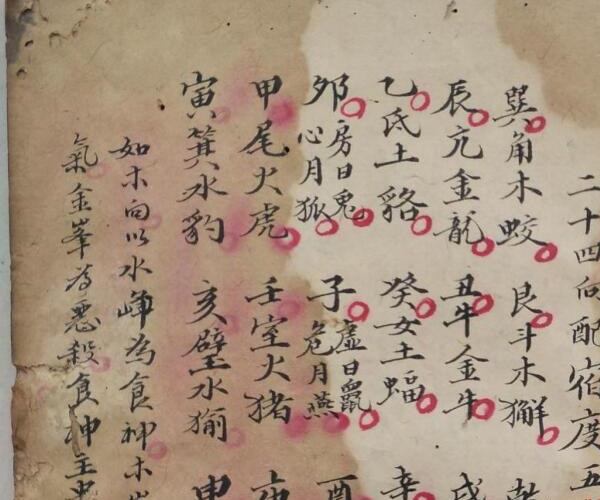 二十四向配宿度五
巽角木蛟 艮斗木獬
辰亢金龍 丑牛金牛 戌
乙氐土貉 癸女土蝠 辛
夘房日兔心月狐 子虛日鼠危月燕 酉
甲尾火虎 壬室火猪 庚
寅箕水豹 亥壁水㺄 申
如木向以水峰為食神木
氣金峯為惡殺食神主